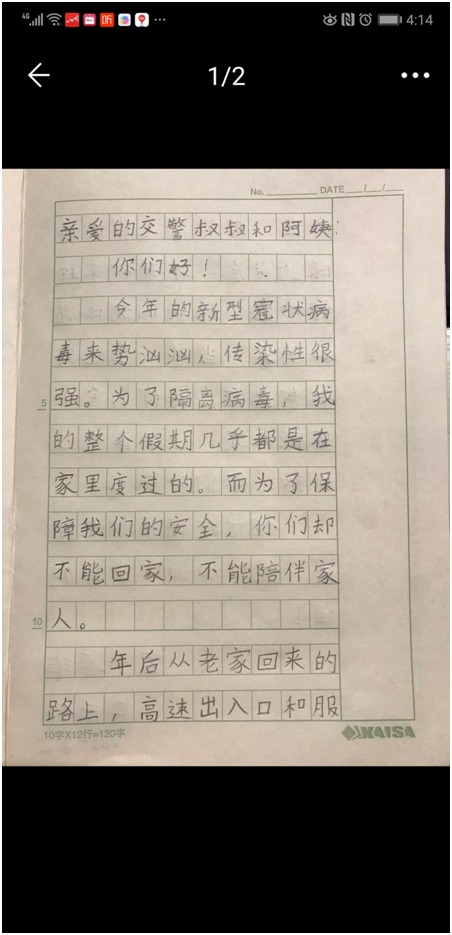 4G 听 ... 4:14
1/2
No. DATE / /
亲爱的交警叔叔和阿姨:
你们好！
今年的新型冠状病
毒来势汹汹，传染性很
强。为了隔离病毒，我
5
的整个假期几乎都是在
家里度过的。而为了保
障我们的安全，你们却
不能回家，不能陪伴家
人。
10
年后从老家回来的
路上，高速出入口和服
10字X12行=120字 KAISA